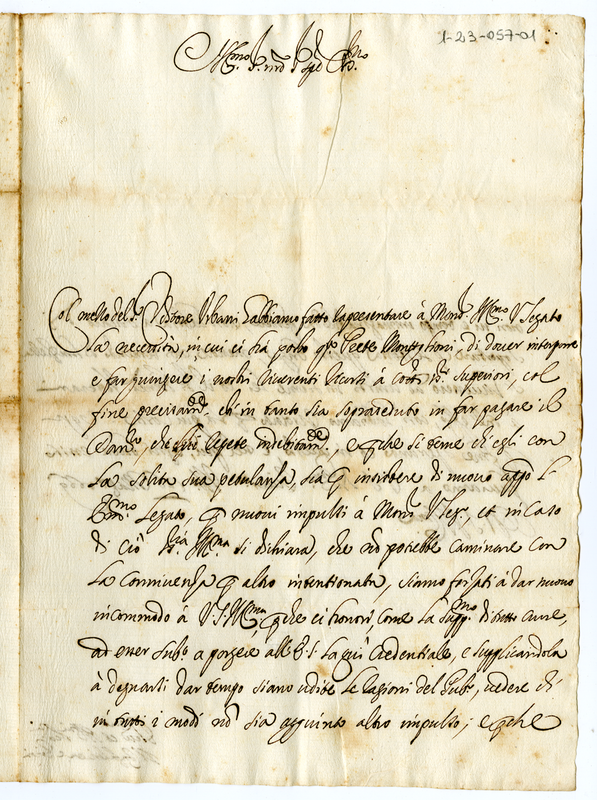 1-23-057-01
Ill.mo S. nro Sig. P.mo
Col mezzo del S. Dottore Urbani habbiamo fatto rapresentare à Mons. Ill.mo V. Legato
la necessità, in cui ci hà posto q.o Prete Montiglioni, di dover interporre
e far giungere i nostri riverenti ricorsi à cotesti SS. Superiori, col
fine precisam.te ch'in tanto sia sopraseduto in far pagare il
che repete indebitam.te, e perche si teme ch'egli con
la solita sua petulanza, sia p insistere di nuovo app.o l'
Em.mo Legato, p nuovi impulsi à Mons. V. Leg., et in caso
di ciò S.ria Ill.ma si dichiara, che nõ potrebbe caminare con
la connivenza p altro intentionata, siamo forzati à dar nuovo
incommodo à V.S. Ill.ma, perche ci honori, come la supp.mo di tutto cuore,
ad esser sub.o a porgere all'E.S. la qui Credentiale, e supplicandola
à degnarsi dar tempo siano udite le ragioni del Pub.o, vedere ch'
in tutti i modi nõ sia aggiunto altro impulso; e perche